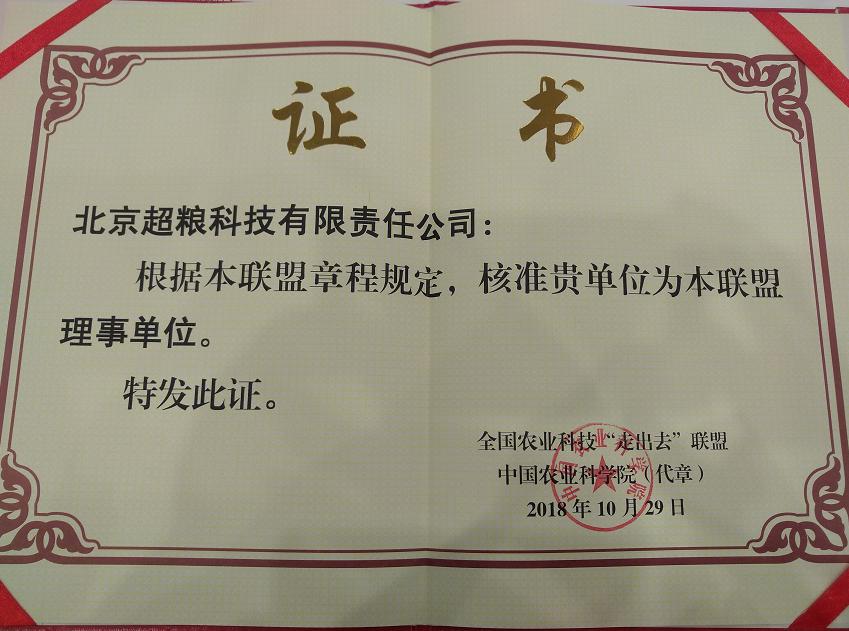 证 书
北京超粮科技有限责任公司：
根据本联盟章程规定，核准贵单位为本联盟
理事单位。
特发此证。
全国农业科技“走出去”联盟
中国农业科学院（代章）
2018年10月29日
中国农业科学院